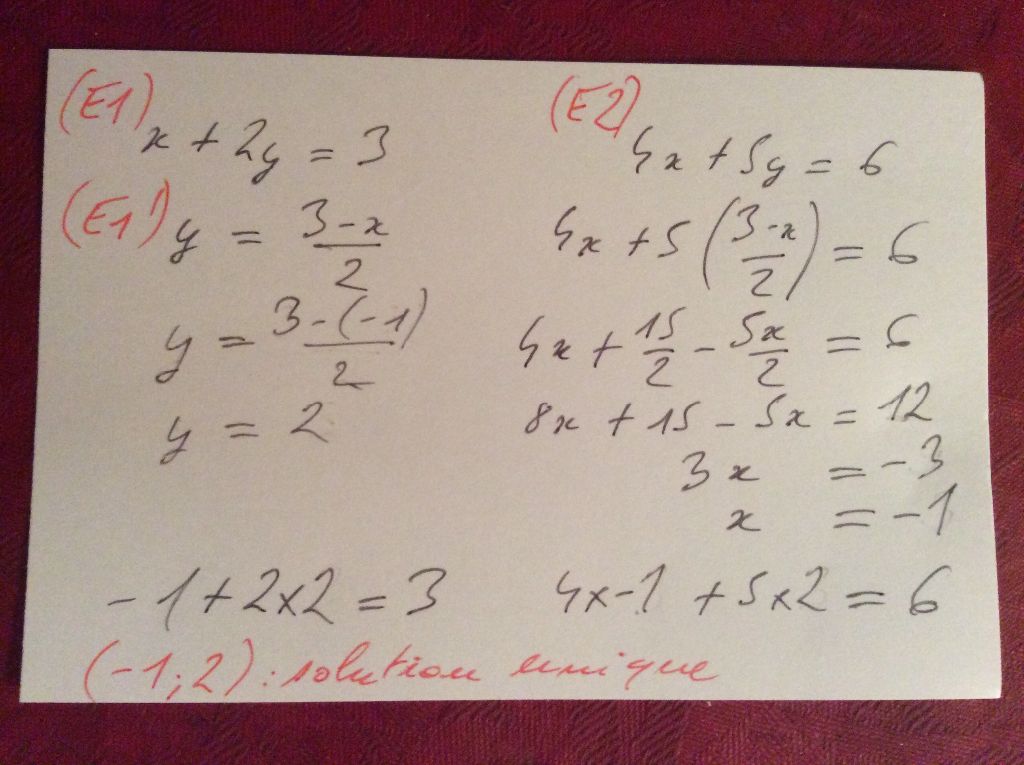 (E1) x + 2y = 3
(E1') y = (3 - x)/2
y = (3 - (-1))/2
y = 2
(E2) 4x + 5y = 6
4x + 5((3 - x)/2) = 6
4x + 15/2 - 5x/2 = 6
8x + 15 - 5x = 12
3x = -3
x = -1
-1 + 2 × 2 = 3
4 × -1 + 5 × 2 = 6
(-1 ; 2) : solution unique